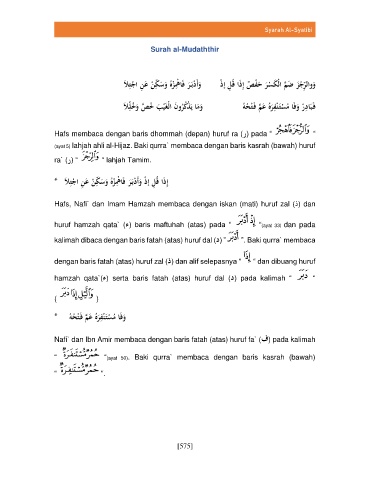 Syarah Al-Syatibi
Surah al-Mudaththir
وَوَالرُّجْزَ ضَمَّ الْكَسْرَ حَفْصٌ إِذَا قُلِ إِذْ وَأَدْبَرَ فَاهْمِزْهُ وَسَكِّنْ عَنِ اجْتِلَا
فَبَادِرْ وَفَا مُسْتَنْفِرَهْ عَمَّ فَتْحُهُ وَمَا يَذْكُرُونَ الْغَيْبَ خُصَّ وَخُلِّلَا
Hafs membaca dengan baris dhommah (depan) huruf ra (ر) pada " وَٱلرُّجْزَ فَٱهْجُرْ "
(ayat 5) lahjah ahli al-Hijaz. Baki qurra` membaca dengan baris kasrah (bawah) huruf
ra` (ر) " وَٱلرِّجْزَ " lahjah Tamim.
* إِذَا قُلِ إِذْ وَأَدْبَرَ فَاهْمِزْهُ وَسَكِّنْ عَنِ اجْتِلَا
Hafs, Nafi` dan Imam Hamzah membaca dengan iskan (mati) huruf zal (ذ) dan
huruf hamzah qata` (ء) baris maftuhah (atas) pada " إِذْ أَدْبَرَ "(ayat 33) dan pada
kalimah dibaca dengan baris fatah (atas) huruf dal (د) " أَدْبَرَ ". Baki qurra` membaca
dengan baris fatah (atas) huruf zal (ذ) dan alif selepasnya " إِذَا " dan dibuang huruf
hamzah qata`(ء) serta baris fatah (atas) huruf dal (د) pada kalimah " دَبَرَ "
( وَٱلَّيْلِ إِذَا دَبَرَ )
* وَفَا مُسْتَنْفِرَهْ عَمَّ فَتْحُهُ
Nafi` dan Ibn Amir membaca dengan baris fatah (atas) huruf fa` (ف) pada kalimah
" حُمُرٌ مُّسْتَنفَرَةٌ "(ayat 50). Baki qurra` membaca dengan baris kasrah (bawah)
" حُمُرٌ مُّسْتَنفِرَةٌ ".
[575]